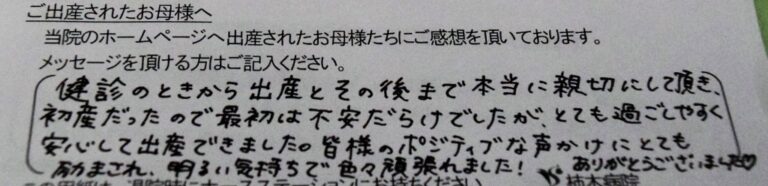 ご出産されたお母様へ
当院のホームページへ出産されたお母様たちにご感想を頂いております。
メッセージを頂ける方はご記入ください。
健診のときから出産とその後まで本当に親切にして頂き、
初産だったので最初は不安だらけでしたが、とても過ごしやすく
安心して出産できました。皆様のポジティブな声かけにとても
励まされ、明るい気持ちで色々頑張れました！ ありがとうございました♡
この用紙は、退院時にナースステーションにお持ちください
柿本病院